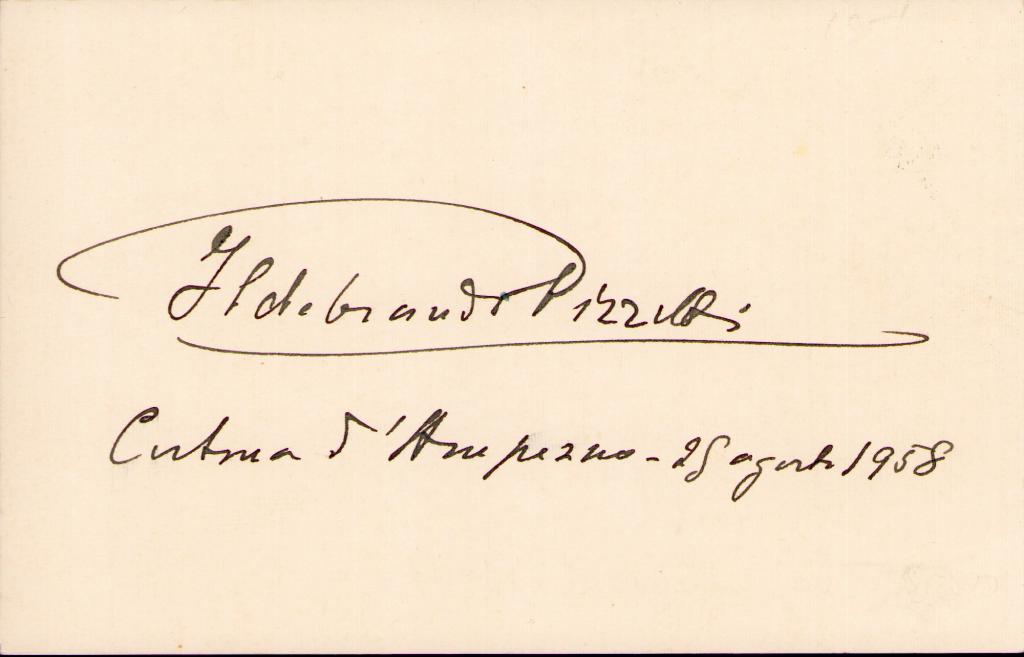 Ildebrando Pizzetti
Cortina d'Ampezzo - 25 agosto 1958